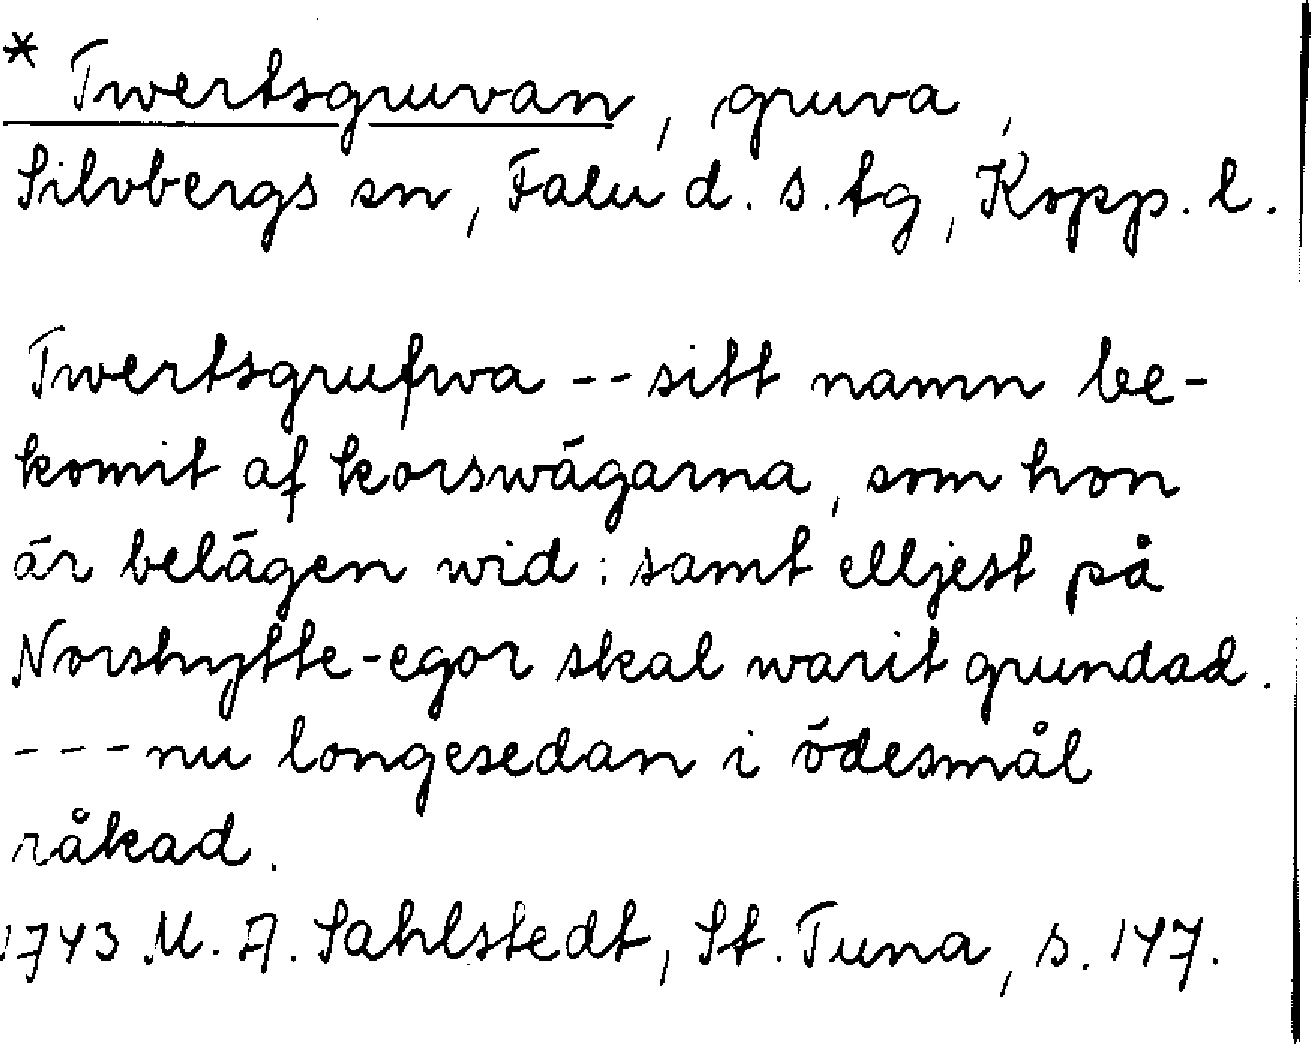 * Twertsgruvan, gruva,
Silvbergs sn, Falu d. s. tg, Kopp. l.
Twertsgrufwa -- sitt namn be-
komit af korswägarna, som hon
är belägen wid: samt elljest på
Norshytte-egor skal warit grundad.
--- nu longesedan i ödesmål
råkad.
1743 M. A. Sahlstedt, St. Tuna, s. 147.